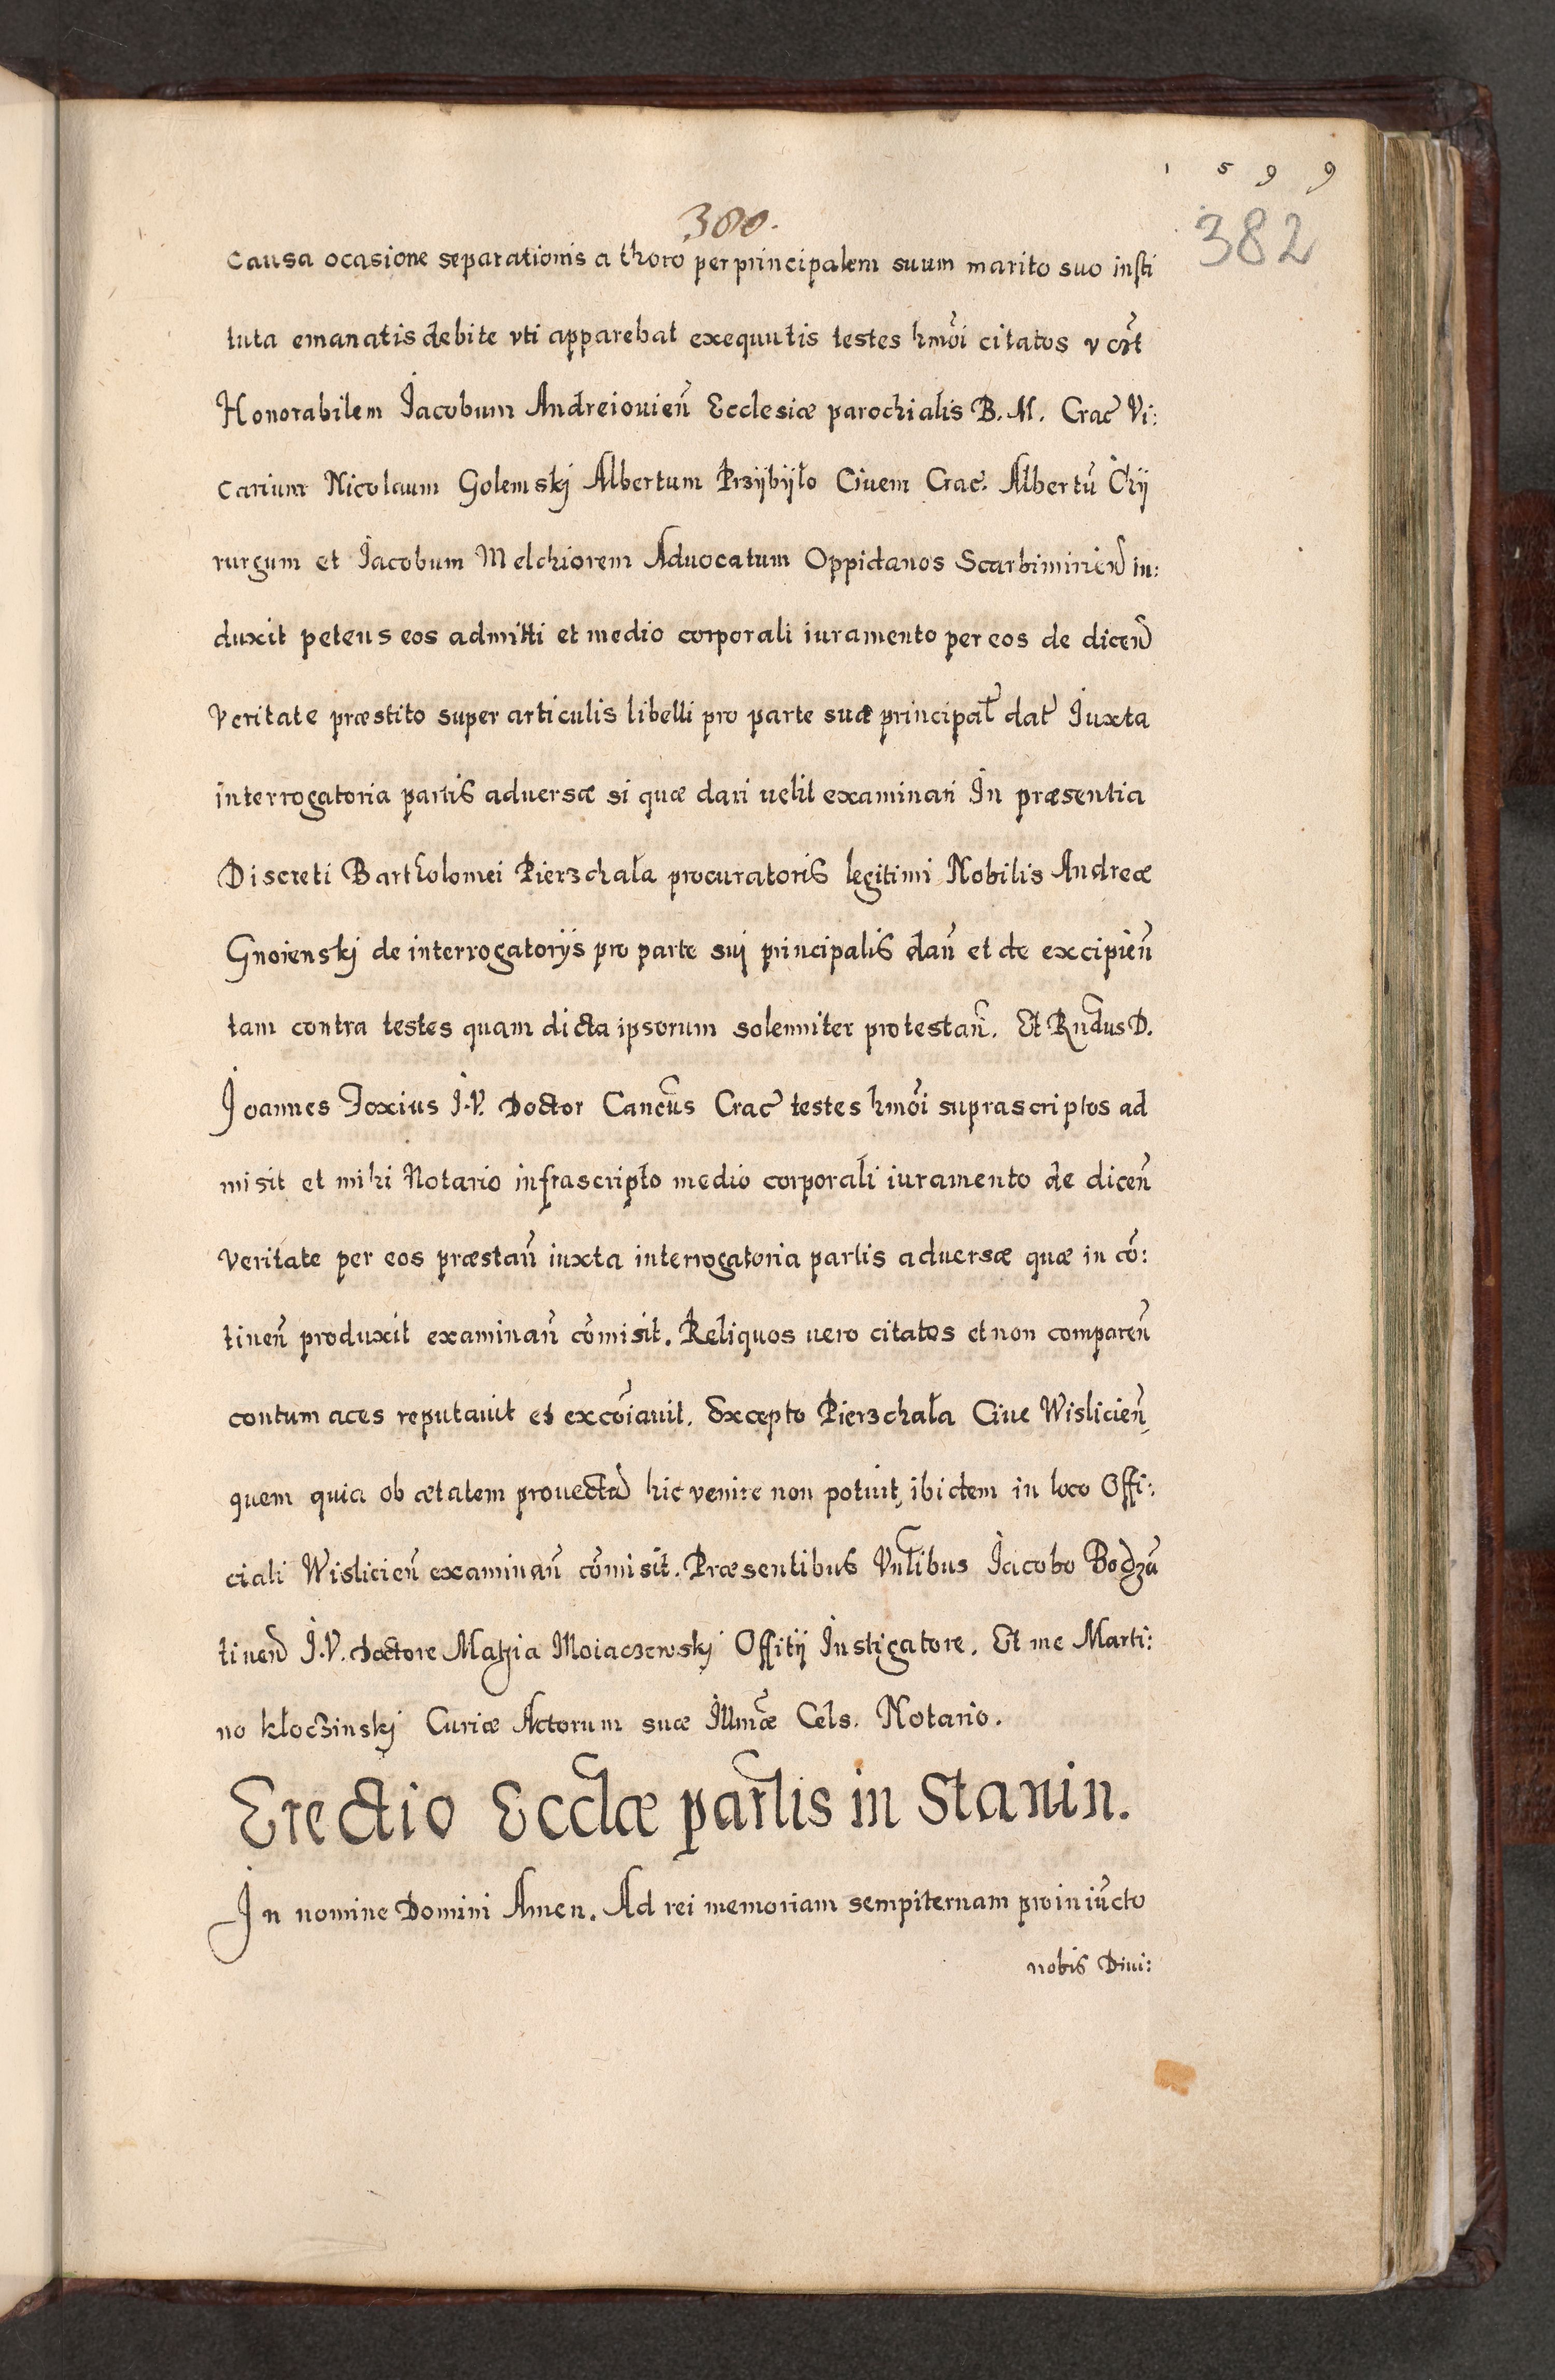 1 5 9 9
380.
382
causa ocasione separationis a thoro per principalem suum marito suo insti
tuta emanatis debite vti apparebat exequutis testes hmōi citatos vꝫt
Honorabilem Jacobum Andreiouien̄ Ecclesiæ parochialis B. M. Crac̄ Vi:
carium Nicolaum Golemskj Albertum Przÿbÿło Ciuem Crac̄. Albertū Chÿ
rurgum et Jacobum Melchiorem Aduocatum Oppidanos Scarbimirien̄ in:
duxit petens eos admitti et medio corporali iuramento per eos de dicen̄
veritate præstito super articulis libelli pro parte suæ principal̄ dat̄ Juxta
interrogatoria partis aduersæ si quæ dari uelit examinari In præsentia
Discreti Bartholomei Pierzchała procuratoris legitimi Nobilis Andreæ
Gnoienskj de interrogatorÿs pro parte suj principalis dan̄ et de excipien̄
tam contra testes quam dicta ipsorum solenniter protestan̄. Et Rn̄dus D.
Joannes Foxius J. V. Doctor Canc̄us Crac̄ testes hmōi suprascriptos ad
misit et mihi Notario infrascripto medio corporali iuramento de dicen̄
veritate per eos præstan̄ iuxta interrogatoria partis aduersæ quæ in cō:
tinen̄ produxit examinan̄ cōmisit. Reliquos uero citatos et non comparen̄
contumaces reputauit et excōiauit. Excepto Pierzchała Ciue Wislicien̄,
quem quia ob ætatem prouectā hic venire non potuit, ibidem in loco Offi:
ciali Wislicien̄ examinan̄ cōmisit. Præsentibus Vn̄libus Jacobo Bodzā
tinen̄ J. V. doctore Mathia Moiaczewskj Offitÿ Instigatore. Et me Marti:
no kłoczinskj Curiæ Actorum suæ Illmæ Cels. Notario.
Erectio Ecclæ parlis in Stanin.
In nomine Domini Amen. Ad rei memoriam sempiternam pro iniūcto
nobis Diui: